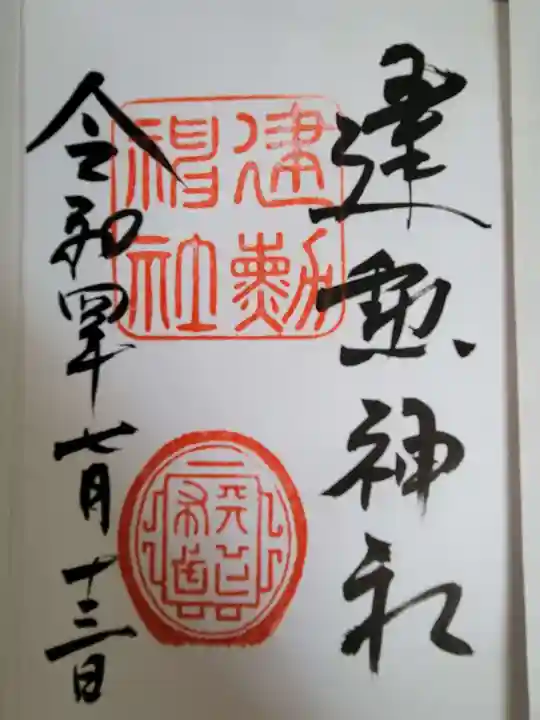 建勲神社
建勲
神社
令和四年七月十三日